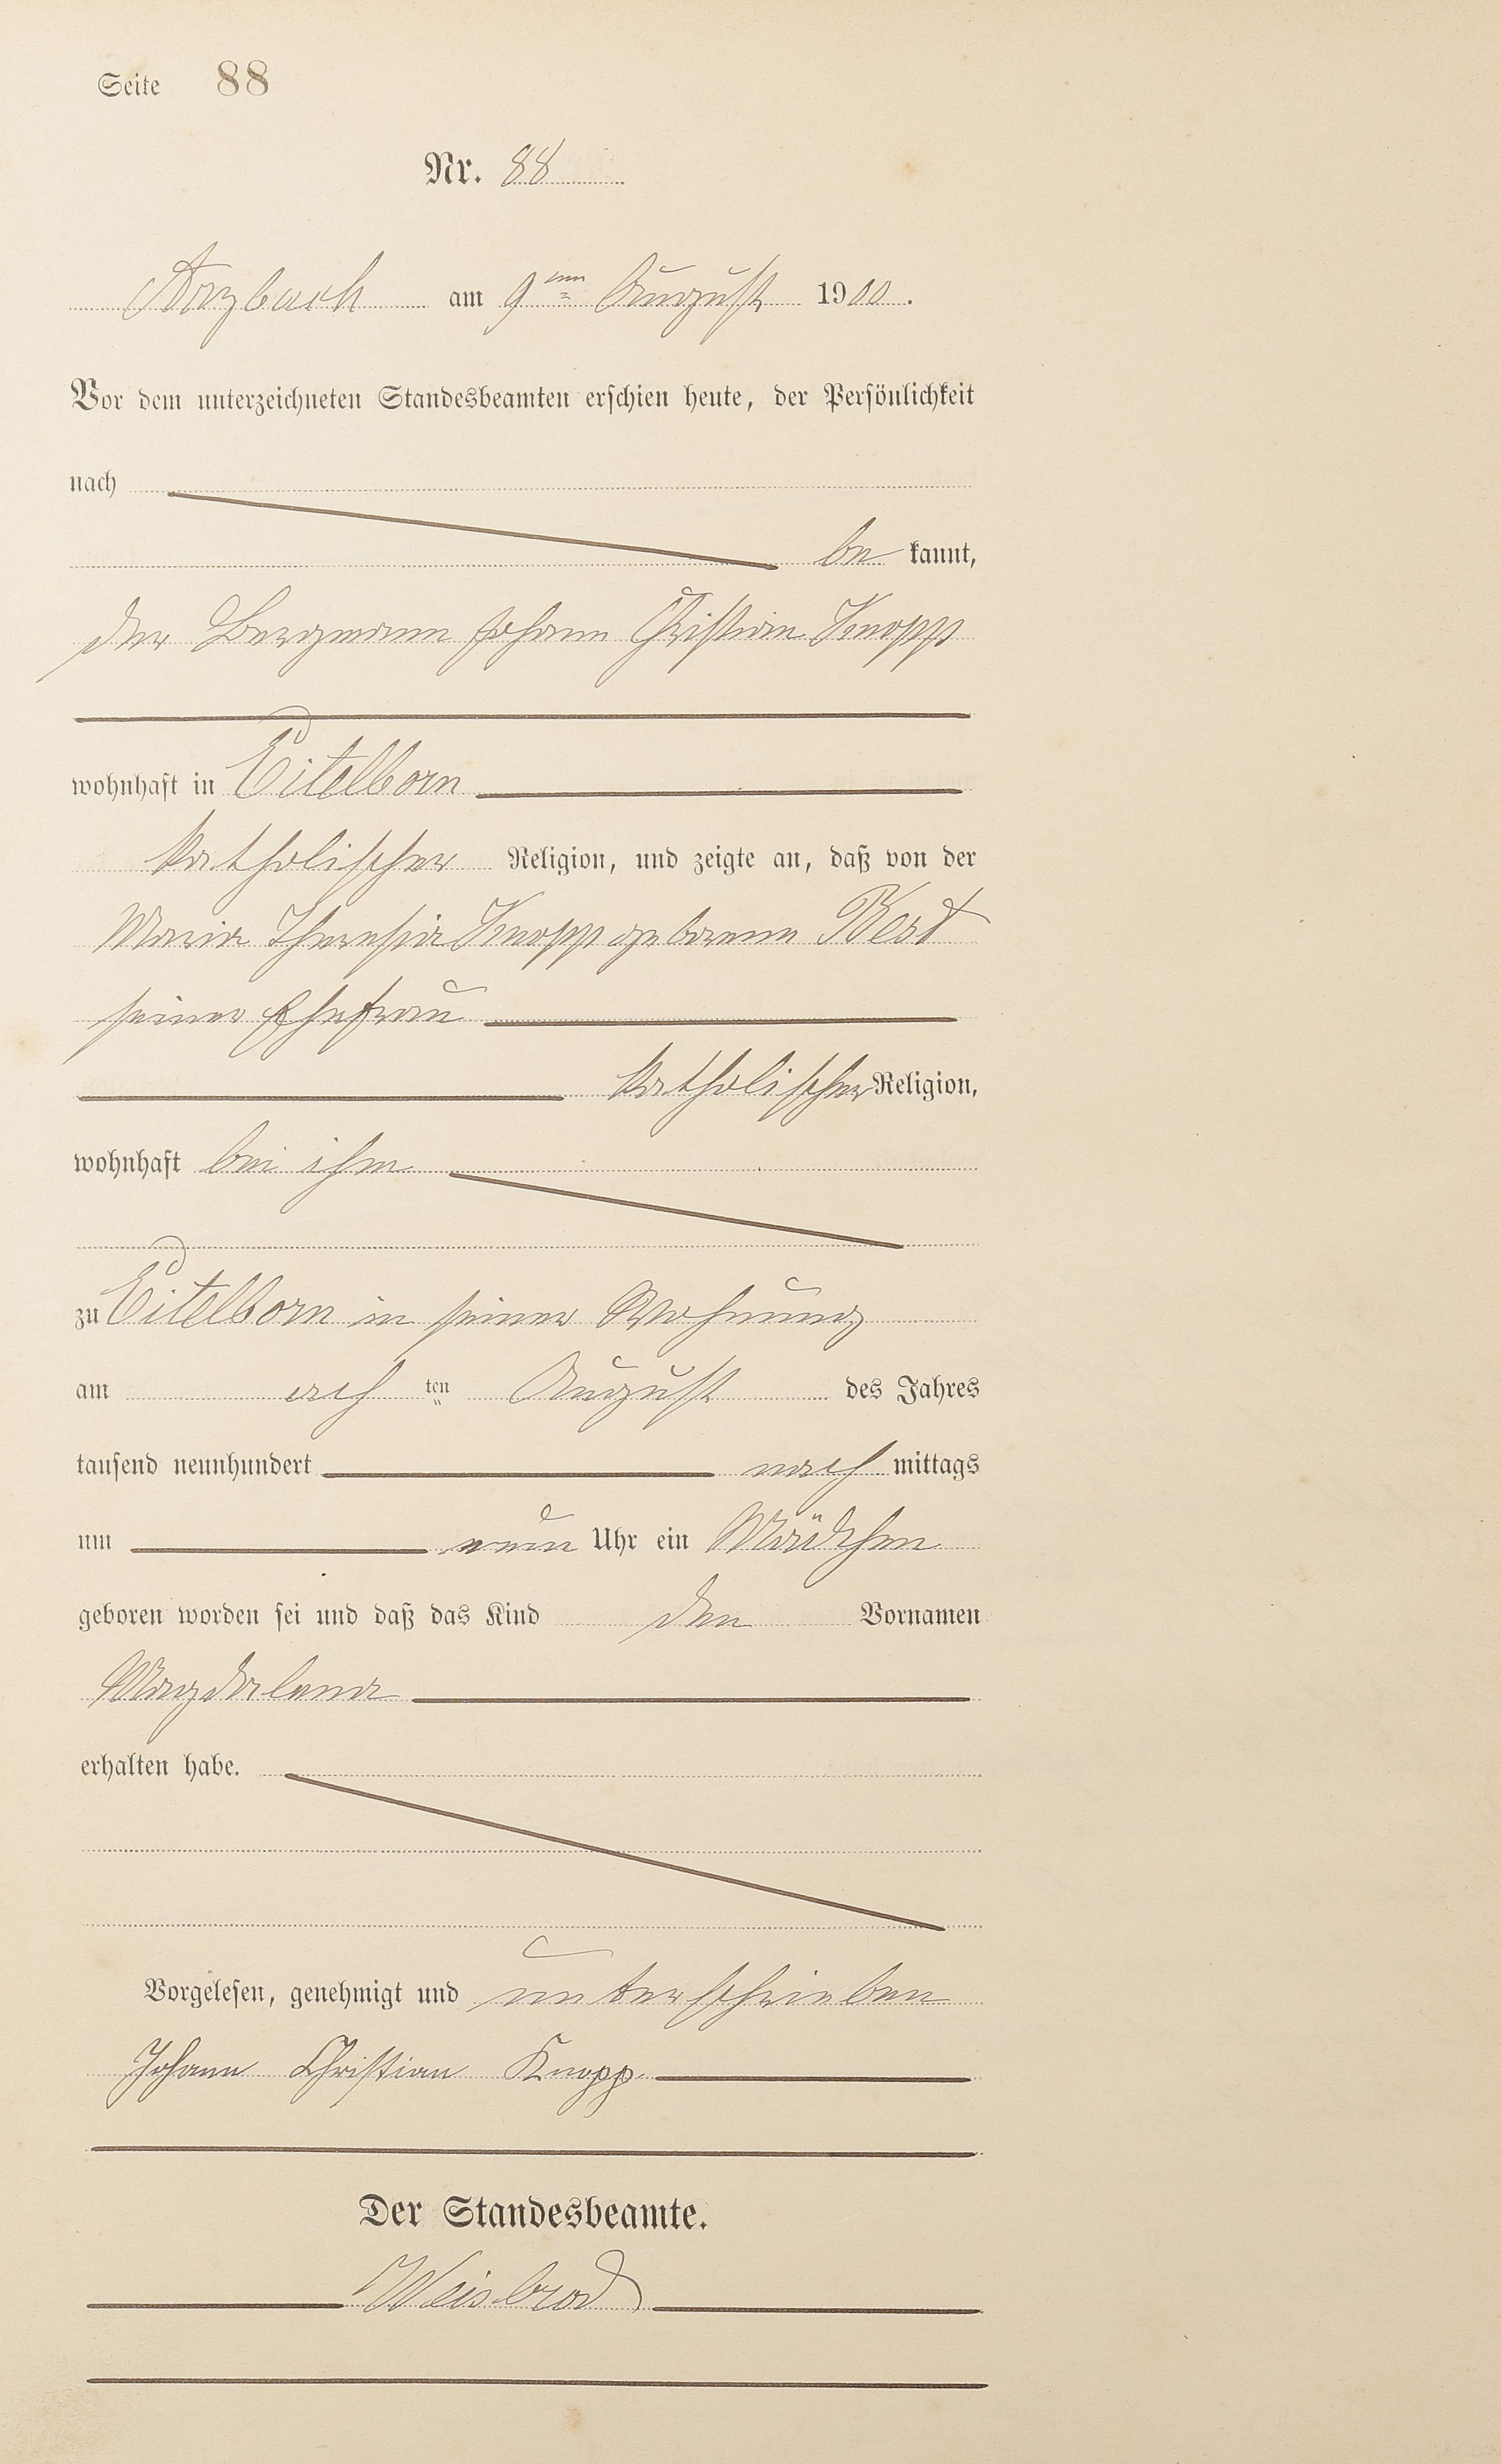 Seite 88
Nr. 88
Arzbach am 9ten August 1900.
Vor dem unterzeichneten Standesbeamten erschien heute, der Persönlichkeit
nach
be kannt,
der Bergmann Johann Christian Knopp
wohnhaft in Eitelborn
katholischer Religion, und zeigte an, daß von der
Maria Theresia Knopp geborenen Best
seiner Ehefrau
katholischer Religion,
wohnhaft bei ihm
zu Eitelborn in seiner Wohnung
am ach ten August des Jahres
tausend neunhundert nach mittags
um neun Uhr ein Mädchen
geboren worden sei und daß das Kind den Vornamen
Magdalena
erhalten habe.
Vorgelesen, genehmigt und unterschrieben
Johann Christian Knopp.
Der Standesbeamte.
Weisbrod